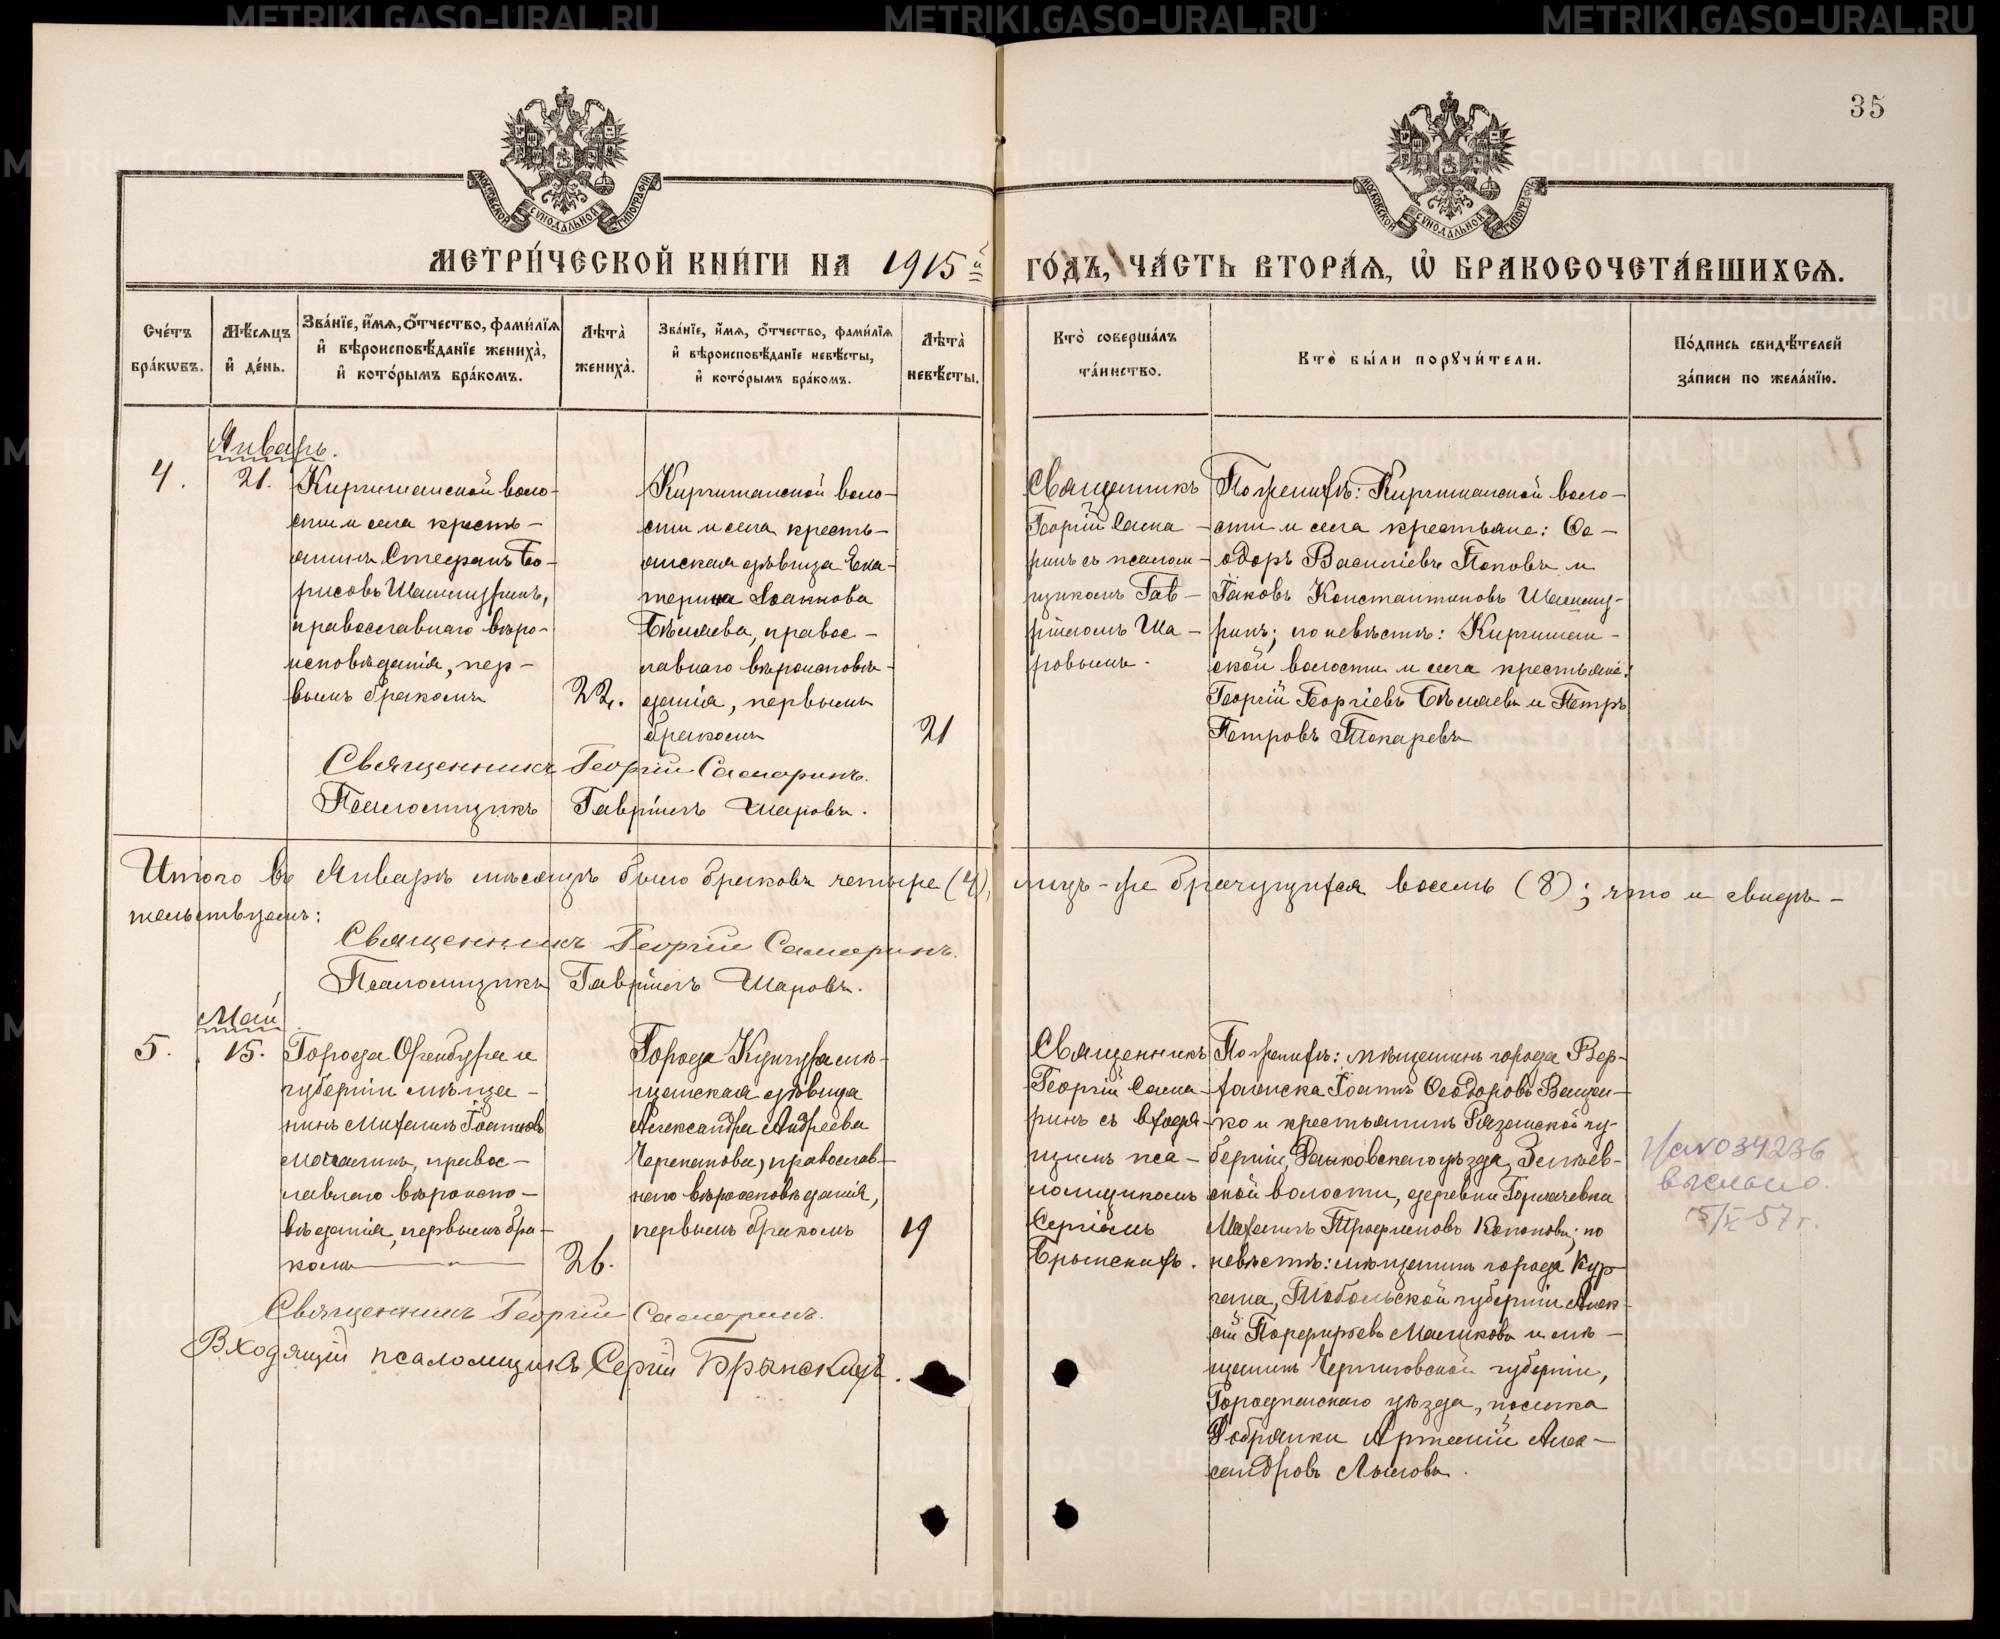 35
МОСКОВСКОЙ СѴНОДАЛЬНОЙ ТИПОГРАФІИ
МОСКОВСКОЙ СѴНОДАЛЬНОЙ ТИПОГРАФІИ
МЕТРИ́ЧЕСКОЙ КНИ́ГИ НА 1915 ГО́ДЪ, ЧА́СТЬ ВТОРА́Я, Ѡ БРАКОСОЧЕТА́ВШИХСЯ.
Сче́тъ бра́кѡвъ.
Мѣ́сяцъ и҆ де́нь.
Зва́нїе, и҆́мя, ѻ҆́тчество, фами́лїя и҆ вѣроисповѣ́данїе жениха̀, и҆ кото́рымъ бра́комъ.
Лѣта̀ жениха̀.
Зва́нїе, и҆́мя, ѻ҆́тчество, фами́лїя и҆ вѣроисповѣ́данїе невѣ́сты, и҆ кото́рымъ бра́комъ.
Лѣта̀ невѣ́сты.
Кто̀ соверша́лъ та́инство.
Кто̀ бы́ли порꙋчи́тели.
По́дпись свидѣ́телей за́писи по жела́нїю.
Январь.
4.
21.
Киргишанской воло-
сти и села кресть-
янинъ Стефанъ Бо-
рисовъ Шашмуринъ,
православнаго вѣро-
исповѣданія, пер-
вымъ бракомъ
22.
Киргишанской воло-
сти и села кресть-
янская дѣвица Ека-
терина Іоаннова
Бѣляева, правос-
лавнаго вѣроисповѣ-
данія, первымъ
бракомъ
21
Священникъ
Георгій Сама-
ринъ съ псалом-
щикомъ Гав-
ріиломъ Ша-
ровымъ.
По женихѣ: Киргишанской воло-
сти и села крестьяне: Ѳе-
одоръ Василіевъ Поповъ и
Іаковъ Константиновъ Шашму-
ринъ; по невѣстѣ: Киргишан-
ской волости и села крестьяне:
Георгій Георгіевъ Бѣляевъ и Петръ
Петровъ Токаревъ
Священникъ Георгій Самаринъ.
Псаломщикъ Гавріилъ Шаровъ.
Итого въ Январѣ мѣсяцѣ было браковъ четыре (4), лицъ-же брачущихся восемь (8); что и свидѣ-
тельствуемъ:
Священникъ Георгій Самаринъ.
Псаломщикъ Гавріилъ Шаровъ.
Май
5.
15.
Города Оренбурга и
губерніи мѣща-
нинъ Михаилъ Іоанновъ
Мочалинъ, правос-
лавнаго вѣроиспо-
вѣданія, первымъ бра-
комъ
26.
Города Кунгура мѣ-
щанская дѣвица
Александра Андреева
Черепанова, православ-
наго вѣроисповѣданія,
первымъ бракомъ
19
Священникъ
Георгій Сама-
ринъ съ входя-
щимъ пса-
ломщикомъ
Сергіемъ
Брынскихъ.
По женихѣ: мѣщанинъ города Вер-
Іоаннъ Ѳеодоровъ
ко и крестьянинъ Рязанской гу-
берніи, Данковскаго уѣзда,
ской волости, деревни
Михаилъ Трофимовъ Кононовъ; по
невѣстѣ: мѣщанинъ города Кур-
гана, Тобольской губерніи Алек-
сій Порфирьевъ Маликовъ и мѣ-
щанинъ Черниговской губерніи,
Городнянскаго уѣзда, посада
Добрянки Артемій Алек-
сандровъ Лыловъ.
N034236
выслано.
15/X-57 г.
Священникъ Георгій Самаринъ.
Входящій псаломщикъ Сергій Брынскихъ.
METRIKI.GASO-URAL.RU